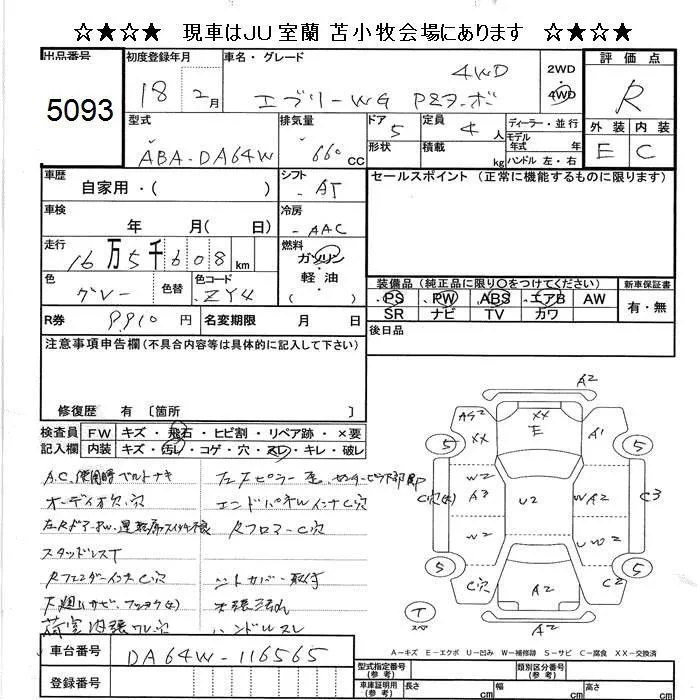 ☆★☆★ 現車はJU室蘭 苫小牧会場にあります ☆★☆★
出品番号 5093
初度登録年月 18 2月
車名・グレード エブリーWG PZターボ 4WD
2WD 4WD
評価点 R
外装 E 内装 C
型式 ABA-DA64W
排気量 660 cc
ドア 5 形状
定員 4人 積載 kg
ディーラー・並行 モデル年式 年 ハンドル 左・右
車歴 自家用・( )
シフト AT
セールスポイント (正常に機能するものに限ります)
車検 年 月( 日)
冷房 AAC
走行 16万5千608km
燃料 ガソリン・軽油・( )
色 グレー 色替
色コード ZY4
装備品 (純正品に限り○をつけてください) 新車保証書
PS PW ABS エアB AW 有・無
SR ナビ TV カワ
R券 9,910円 名変期限 月 日
後日品
注意事項申告欄(不具合内容等は具体的に記入して下さい)
修復歴 有〔箇所 〕
検査員 FW キズ・飛石・ヒビ割・リペア跡・×要
記入欄 内装 キズ・汚レ・コゲ・穴・スレ・キレ・破レ
A.C.使用時ベルトナキ
オーディオ欠、穴
スタッドレスT
RフェンダーインナC穴
下廻りサビ、フショク(大)
荷室内張ワレ、穴
エンドパネルインナC穴
RフロアーC穴
ハンドルスレ
A2
AS2 XX XX E A1
5 5
W2 A3 C穴(大) U2 W A2 C3
W2 U W2
5 5
C穴 A2 C2
T スペア A2
A-キズ E-エクボ U-凹み W-補修跡 S-サビ C-腐食 XX-交換済
車台番号 DA64W-116565
登録番号
型式指定番号(参考) 類別区分番号(参考)
車庫証明用(参考) 長さ cm 幅 cm 高さ cm